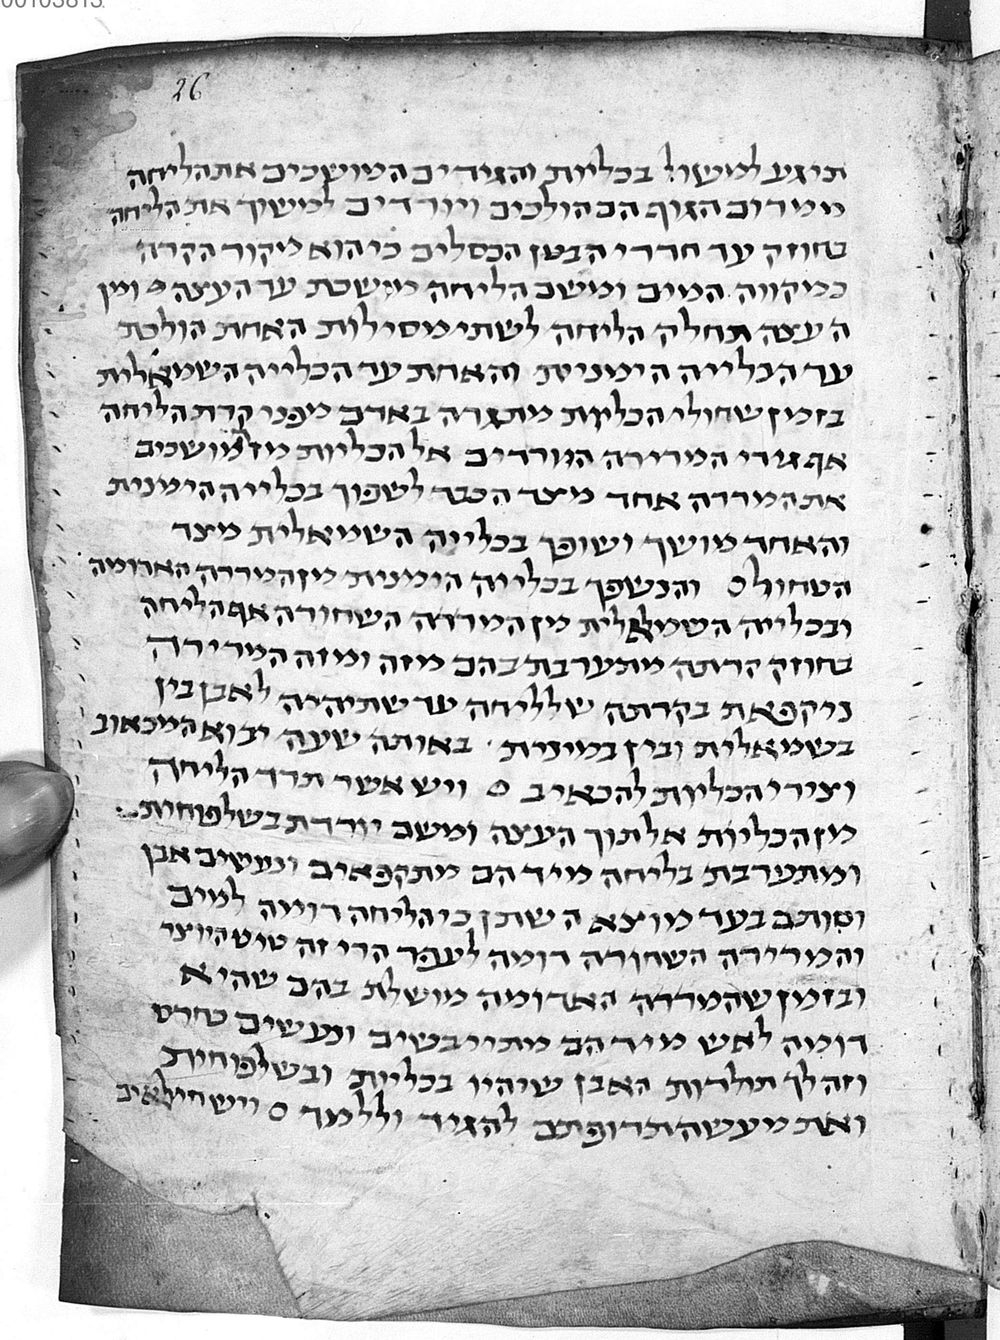 00103813
26
תיגע למשול בכליות והגידים המושכים את הליחה
ממרום הגוף הם הולכים ויורדים למשוך את הליחה
בחוזק עד חדרי הבטן הכסלים כי הוא מיקור הקרה
כמקווה המים ומשם הליחה מושכת עד העצה ומן
העצה תחלק הליחה לשתי מסילות האחת הולכת
עד הכלייה הימנית והאחת עד הכלייה השמאלית
בזמן שחולי הכליות מתגרה באדם מפני קרת הליחה
אף גידי המרירה היורדים אל הכליות מושכים
את המררה אחד מצד הכבד לשפוך בכלייה הימנית
והאחד מושך ושופך בכלייה השמאלית מצד
הטחול והנשפך בכלייה הימנית מן המררה האדומה
ובכלייה השמאלית מן המררה השחורה אף הליחה
בחוזק קרתה מתערבת בהם מזה ומזה המרירה
ניקפאת בקרתה של ליחה עד שתיהיה לאבן בין
בשמאלית ובין בימנית באותה שעה יבוא המכאוב
וצירי הכליות להכאיב ויש אשר תרד הליחה
מן הכליות אל תוך העצה ומשם יורדת בשלפוחית
ומתערבת בליחה מיד הם מתקפאים ונעשים אבן
וסותם בעד מוצא השתן כי הליחה דומה למים
והמרירה השחורה דומה לעפר הרי זה טיט היוצר
ובזמן שהמררה האדומה מושלת בהם שהיא
דומה לאש מיד הם מתייבשים ונעשים כחרס
וזה לך תולדות האבן שיהיו בכליות ובשלפוחית
ואת מעשה תרופתם להגיד וללמד ויש חילאים